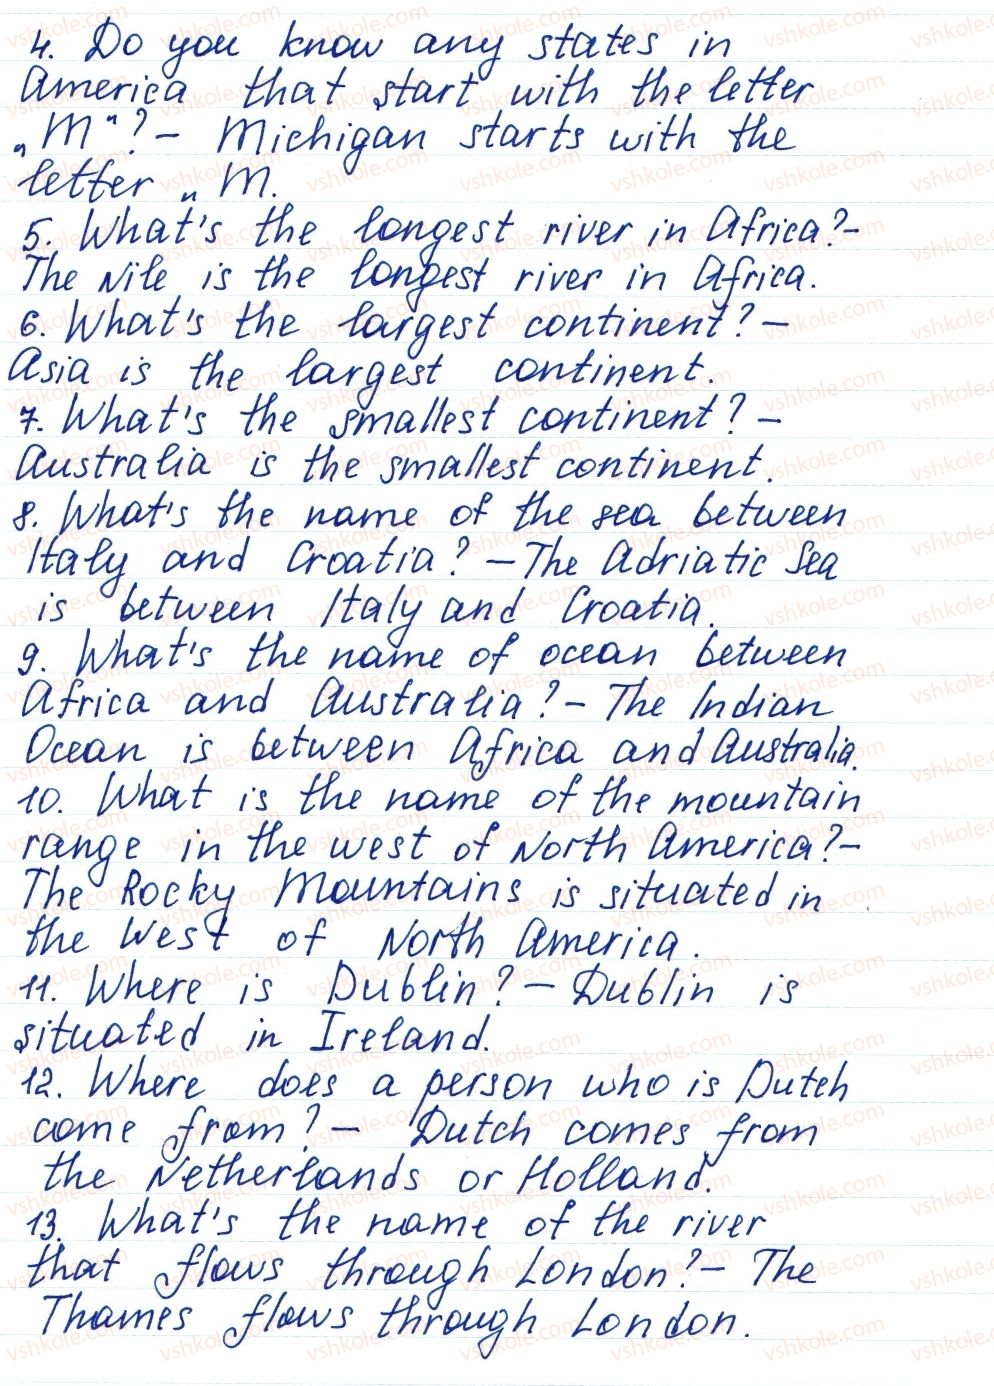 4. Do you know any states in
America that start with the letter
„M“? – Michigan starts with the
letter „M.
5. What's the longest river in Africa? –
The Nile is the longest river in Africa.
6. What's the largest continent? –
Asia is the largest continent.
7. What's the smallest continent? –
Australia is the smallest continent.
8. What's the name of the sea between
Italy and Croatia? – The Adriatic Sea
is between Italy and Croatia.
9. What's the name of ocean between
Africa and Australia? – The Indian
Ocean is between Africa and Australia.
10. What is the name of the mountain
range in the west of North America? –
The Rocky Mountains is situated in
the West of North America.
11. Where is Dublin? – Dublin is
situated in Ireland.
12. Where does a person who is Dutch
come from? – Dutch comes from
the Netherlands or Holland.
13. What's the name of the river
that flows through London? – The
Thames flows through London.